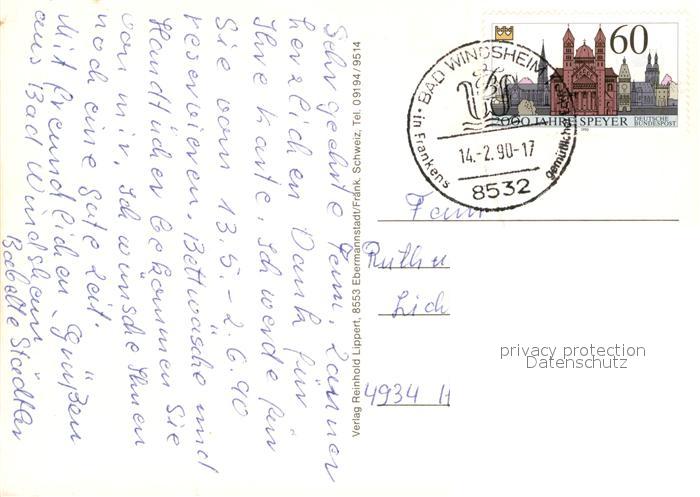 Sehr geehrte Fam. Zammer
herzlichen Dank für
Ihre Karte. Ich werde für
Sie vom 13.5.-2.6.90
reservieren. Bettwäsche und
Handtücher bekommen Sie
von mir. Ich wünsche Ihnen
noch eine gute Zeit.
Mit freundlichen Grüßen
aus Bad Windsheim
Babette
Verlag Reinhold Lippert, 8553 Ebermannstadt/Fränk. Schweiz, Tel. 09194/9514
60
2000 JAHRE SPEYER
DEUTSCHE
BUNDESPOST
1990
BAD WINDSHEIM
in Frankens
14.-2.90-17
8532
Fam
Ruth
Lich
4934 H
privacy protection
Datenschutz